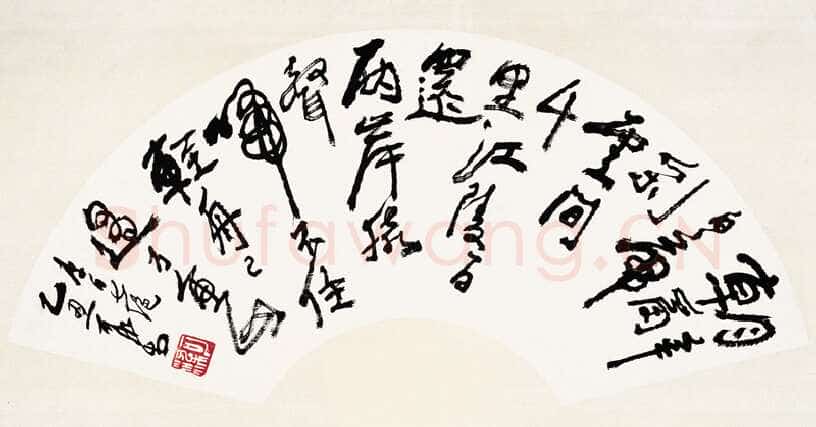 朝辭
白帝彩
雲間
千
里江陵一日
還
兩岸猿
聲
啼不住
輕舟已
過萬重山
己丑
Shufawang.CN